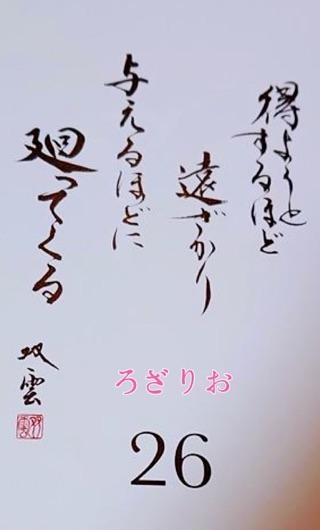 得ようと
するほど
遠ざかり
与えるほどに
廻ってくる
双雲
ろざりお
26